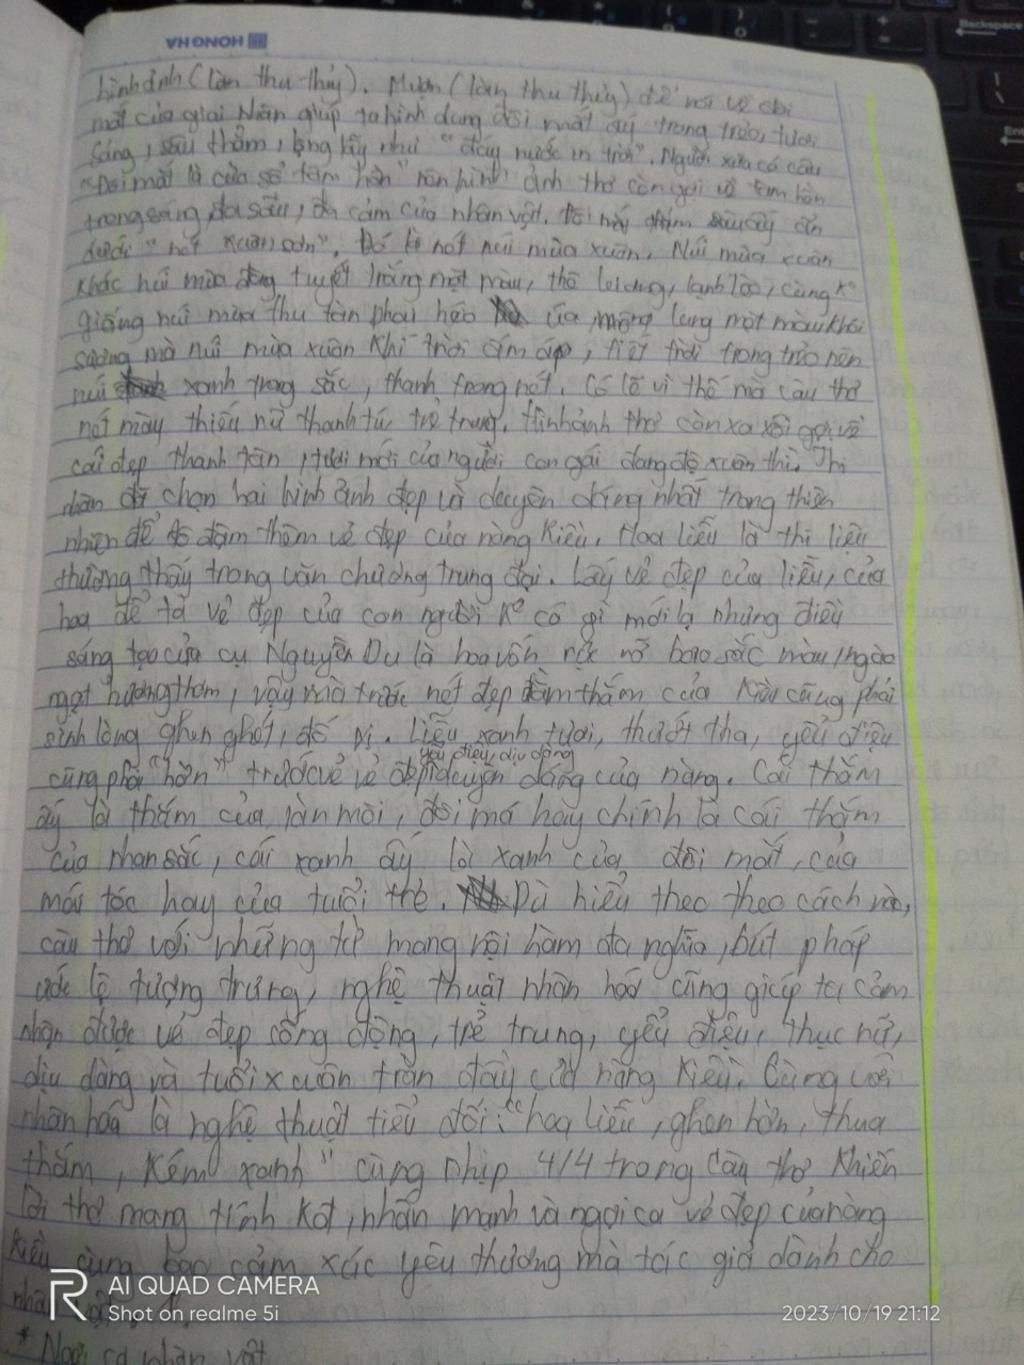 HONG HA
hình ảnh (làn thu thủy). Mượn (làn thu thủy) để nói về đôi
mắt của giai nhân giúp ta hình dung đôi mắt ấy trong trẻo, tươi
sáng, sâu thẳm, lộng lẫy như "đáy nước in trời". Người xưa có câu
"Đôi mắt là cửa sổ tâm hồn" nên hình ảnh thơ còn gợi về tâm hồn
trong sáng, đa sầu, đa cảm của nhân vật. Đôi này ẩn
dưới "nét xuân sơn". Đó là nét núi mùa xuân, Núi mùa xuân
khác núi mùa đông tuyết trắng một màu, thô lạnh lẽo, cũng k°
giống núi mùa thu tàn phai héo úa, mông lung một màu khói
sương mà núi mùa xuân khí trời ấm áp, tiết trời trong trẻo nên
núi xanh trong sắc, thanh trong nét. Có lẽ vì thế mà câu thơ
nét mày thiếu nữ thanh tú, trẻ trung. Hình ảnh thơ còn xa xôi gợi về
cái đẹp thanh tân, tươi mới của người con gái đang độ xuân thì. Thi
nhân đã chọn hai hình ảnh đẹp và duyên dáng nhất trong thiên
nhiên để tô đậm thêm vẻ đẹp của nàng Kiều. Hoa liễu là thi liệu
thường thấy trong văn chương trung đại. Lấy vẻ đẹp của liễu, của
hoa để tả vẻ đẹp của con người k° có gì mới lạ nhưng điều
sáng tạo của cụ Nguyễn Du là hoa vốn rực rỡ bao sắc màu, ngào
ngạt hương thơm, vậy mà trước nét đẹp đằm thắm của Kiều cũng phải
sinh lòng ghen ghét, đố kị. Liễu xanh tươi, thướt tha, yểu điệu
yểu điệu, dịu dàng
cũng phải "hờn" trước vẻ vẻ đẹp duyên dáng của nàng. Cái thắm
ấy là thắm của làn môi, đôi má hay chính là cái thắm
của nhan sắc, cái xanh ấy là xanh của đôi mắt, của
mái tóc hay của tuổi trẻ. Dù hiểu theo theo cách nào,
câu thơ với những từ mang nội hàm đa nghĩa, bút pháp
ước lệ tượng trưng, nghệ thuật nhân hóa cũng giúp ta cảm
nhận được vẻ đẹp sống động, trẻ trung, yểu điệu, thục nữ,
dịu dàng và tuổi xuân tràn đầy của nàng Kiều. Cùng với
nhân hóa là nghệ thuật tiểu đối: "hoa liễu, ghen hờn, thua
thắm, kém xanh" cùng nhịp 4/4 trong câu thơ khiến
lời thơ mang tính kđ, nhấn mạnh và ngợi ca vẻ đẹp của nàng
Kiều cùng bao cảm xúc yêu thương mà tác giả dành cho
nhân vật
* Ngợi ca nhân vật
AI QUAD CAMERA
Shot on realme 5i
2023/10/19 21:12
Backspace